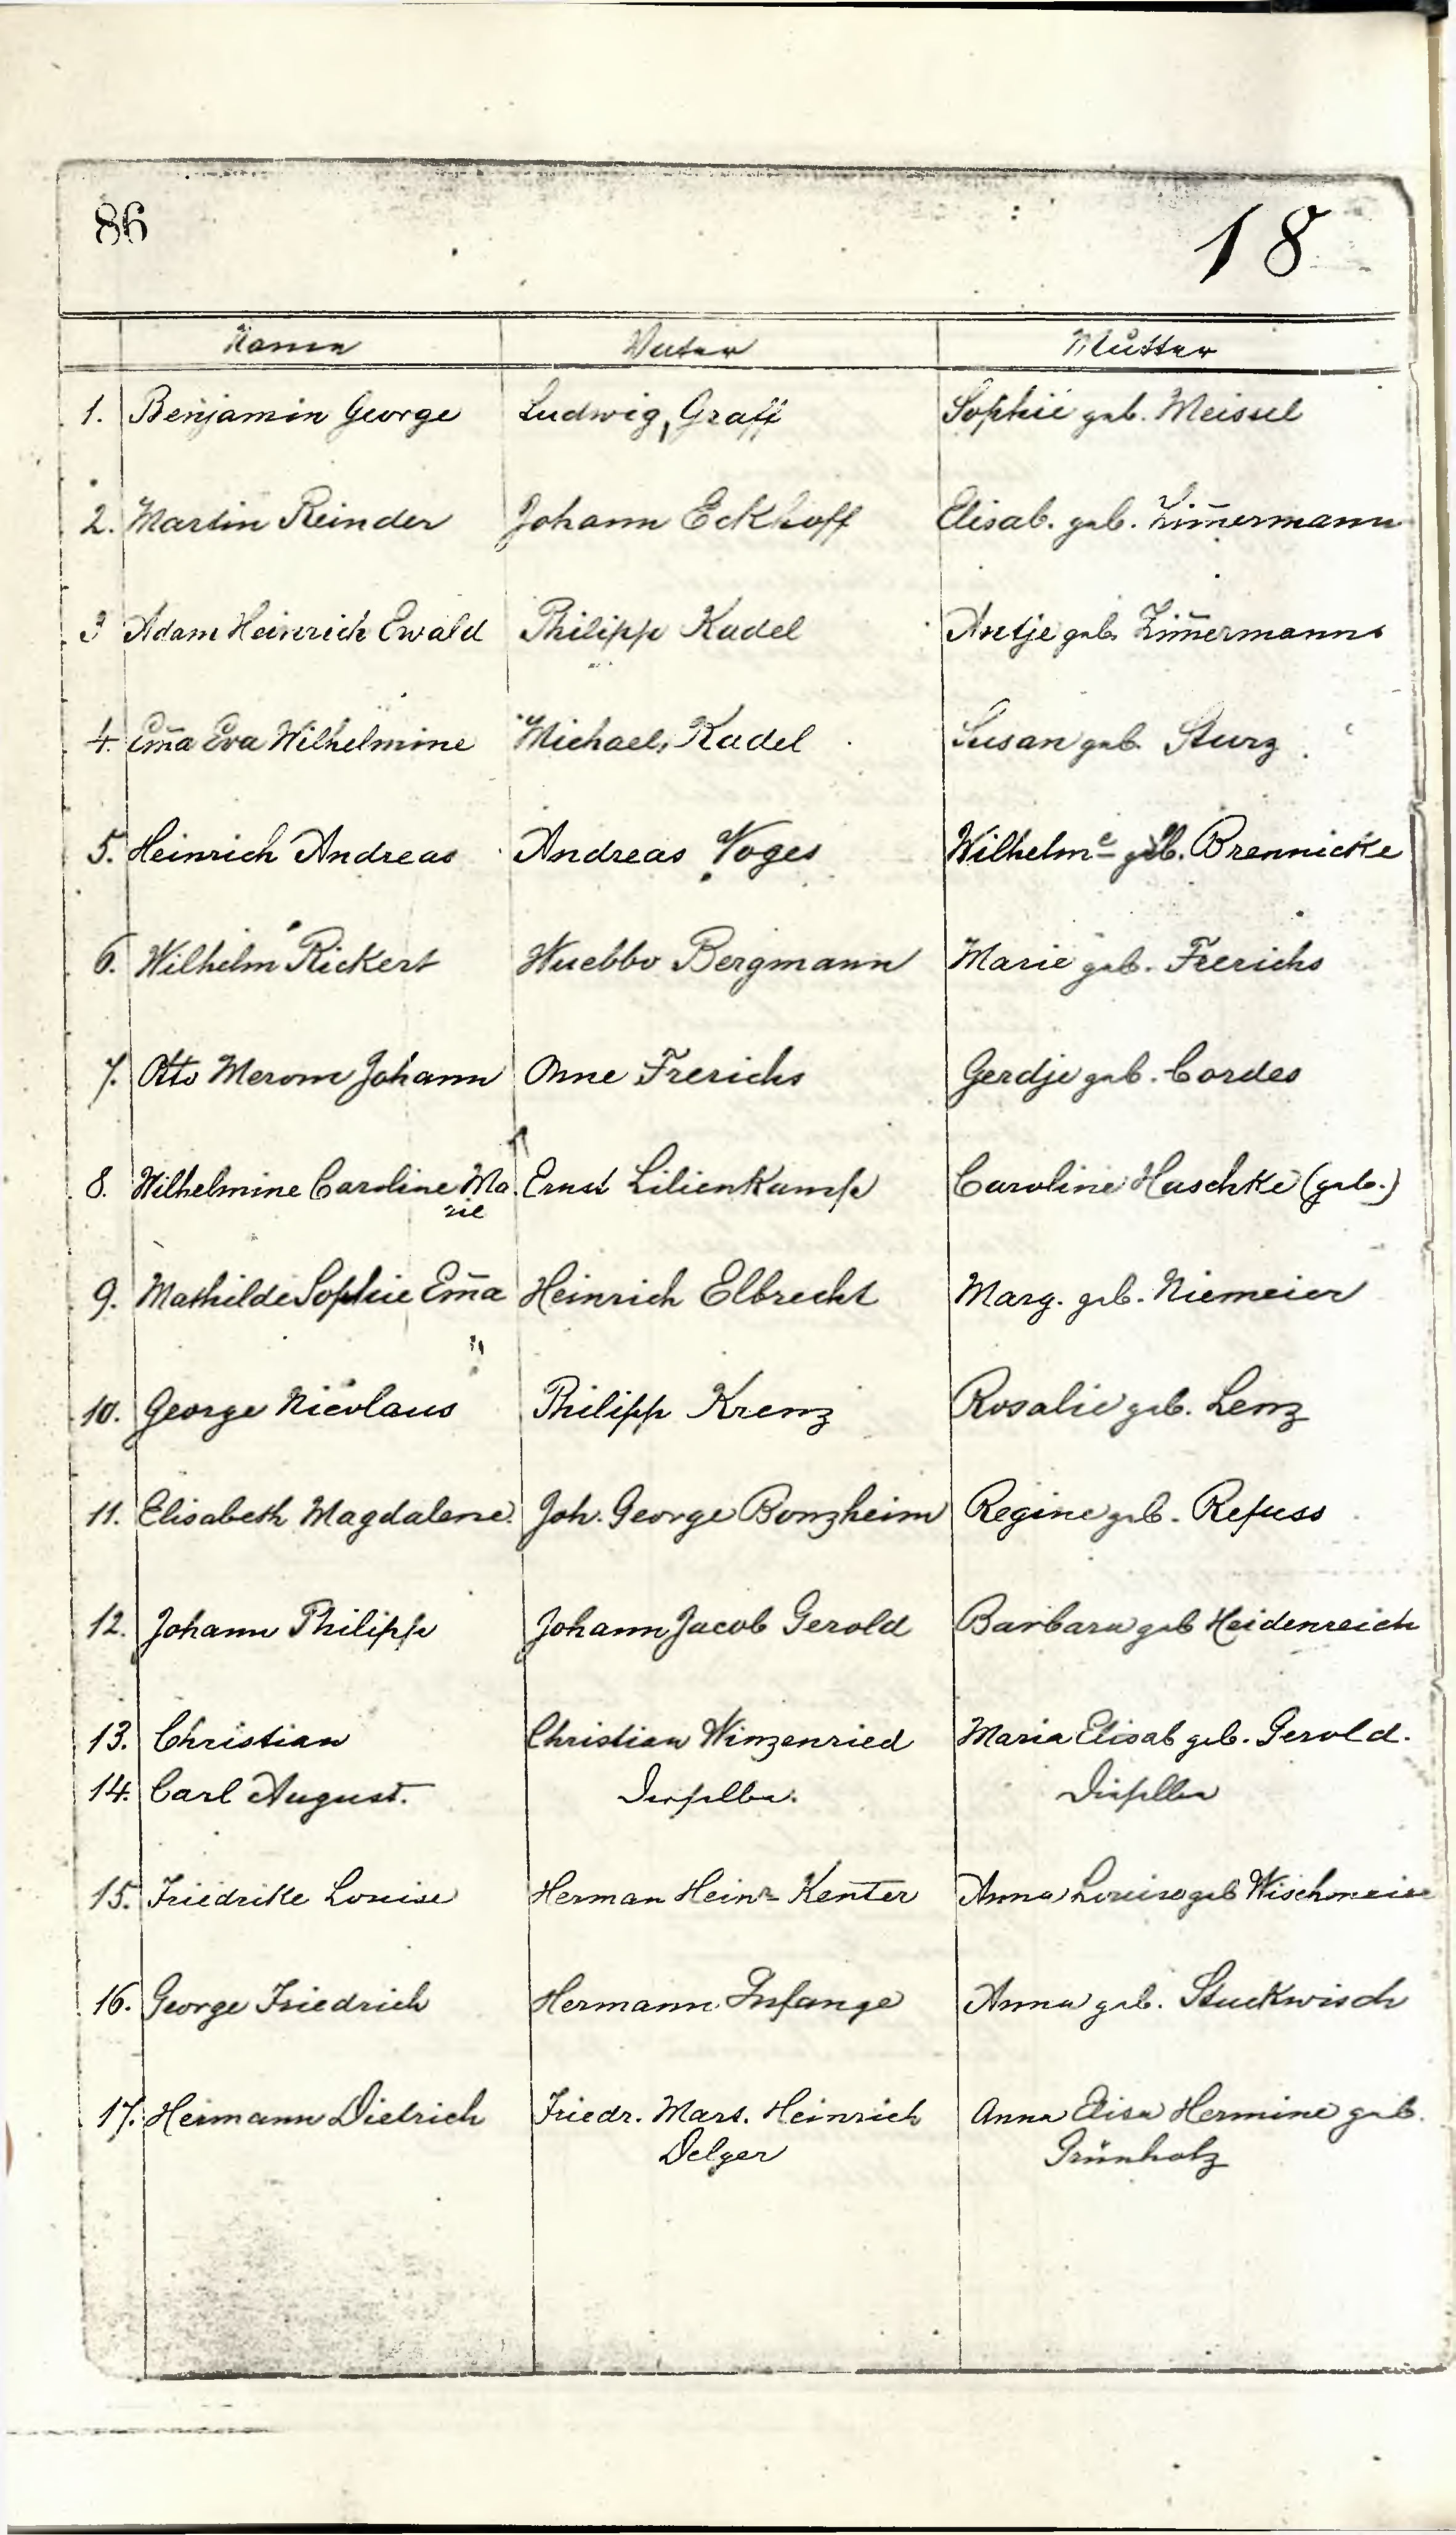 86 18
Name Vater Mutter
1. Benjamin George Ludwig Graff Sophie geb. Meissel
2. Martin Reinder Johann Eckhoff Elisab. geb. Zim̄ermann
3 Adam Heinrich Ewald Philipp Kadel Antje geb. Zim̄ermanns
4. Em̄a Eva Wilhelmine Michael Kadel Susan geb. Sturz
5. Heinrich Andreas Andreas Voges Wilhelmᵉ geb. Brennicke
6. Wilhelm Rickert Wuebbo Bergmann Marie geb. Frerichs
7. Otto Merom Johann Onne Frerichs Gerdje geb. Cordes
8. Wilhelmine Caroline Ma. Ernst Lilienkamp Caroline Haschke (geb.)
rie
9. Mathilde Sophie Em̄a Heinrich Elbrecht Marg. geb. Niemeier
10. George Nicolaus Philipp Krenz Rosalie geb. Lenz
11. Elisabeth Magdalene. Joh. George Bonzheim Regine geb. Refuss
12. Johann Philipp Johann Jacob Gerold Barbara geb Heidenreich
13. Christian Christian Winzenried Maria Elisab geb. Gerold.
14. Carl August. Derselbe. Dieselbe
15. Friedrike Louise Herman Heinr Kenter Anna Louise geb Wischmeier
16. George Friedrich Hermann Insange Anna geb. Stuckwisch
17. Hermann Dietrich Friedr. Mart. Heinrich Anna Elisa Hermine geb.
Delger Grünholz